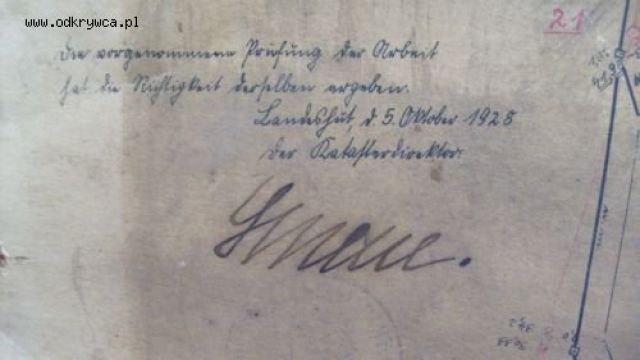 www.odkrywca.pl
21
Die vorgenommene Prüfung der Arbeit
hat die Richtigkeit derselben ergeben.
Landeshut, d. 5. Oktober 1928
Der Katasterdirektor.